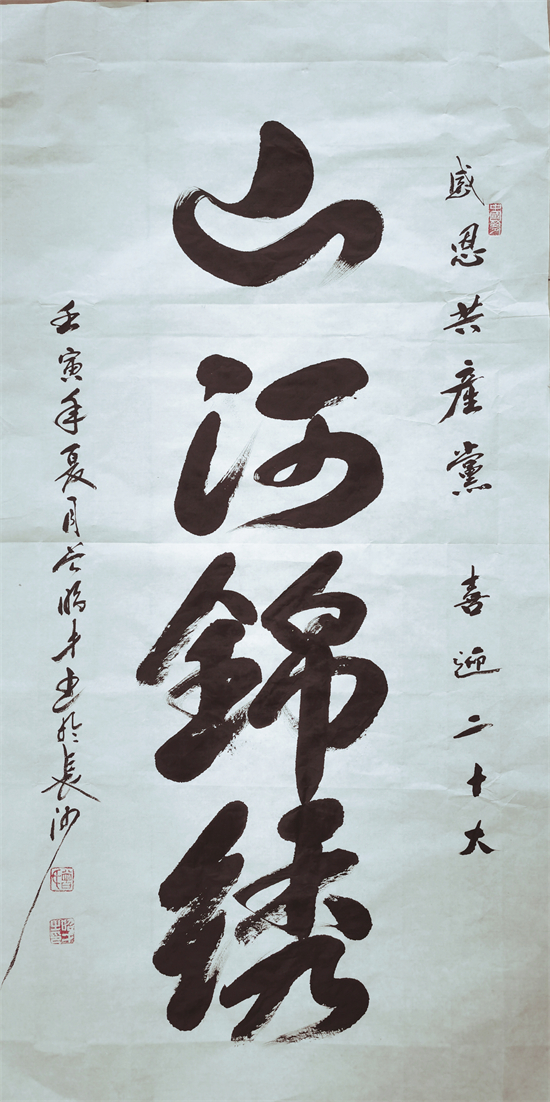 感恩共產黨 喜迎二十大
山河錦綉
壬寅年夏月
才书於長沙